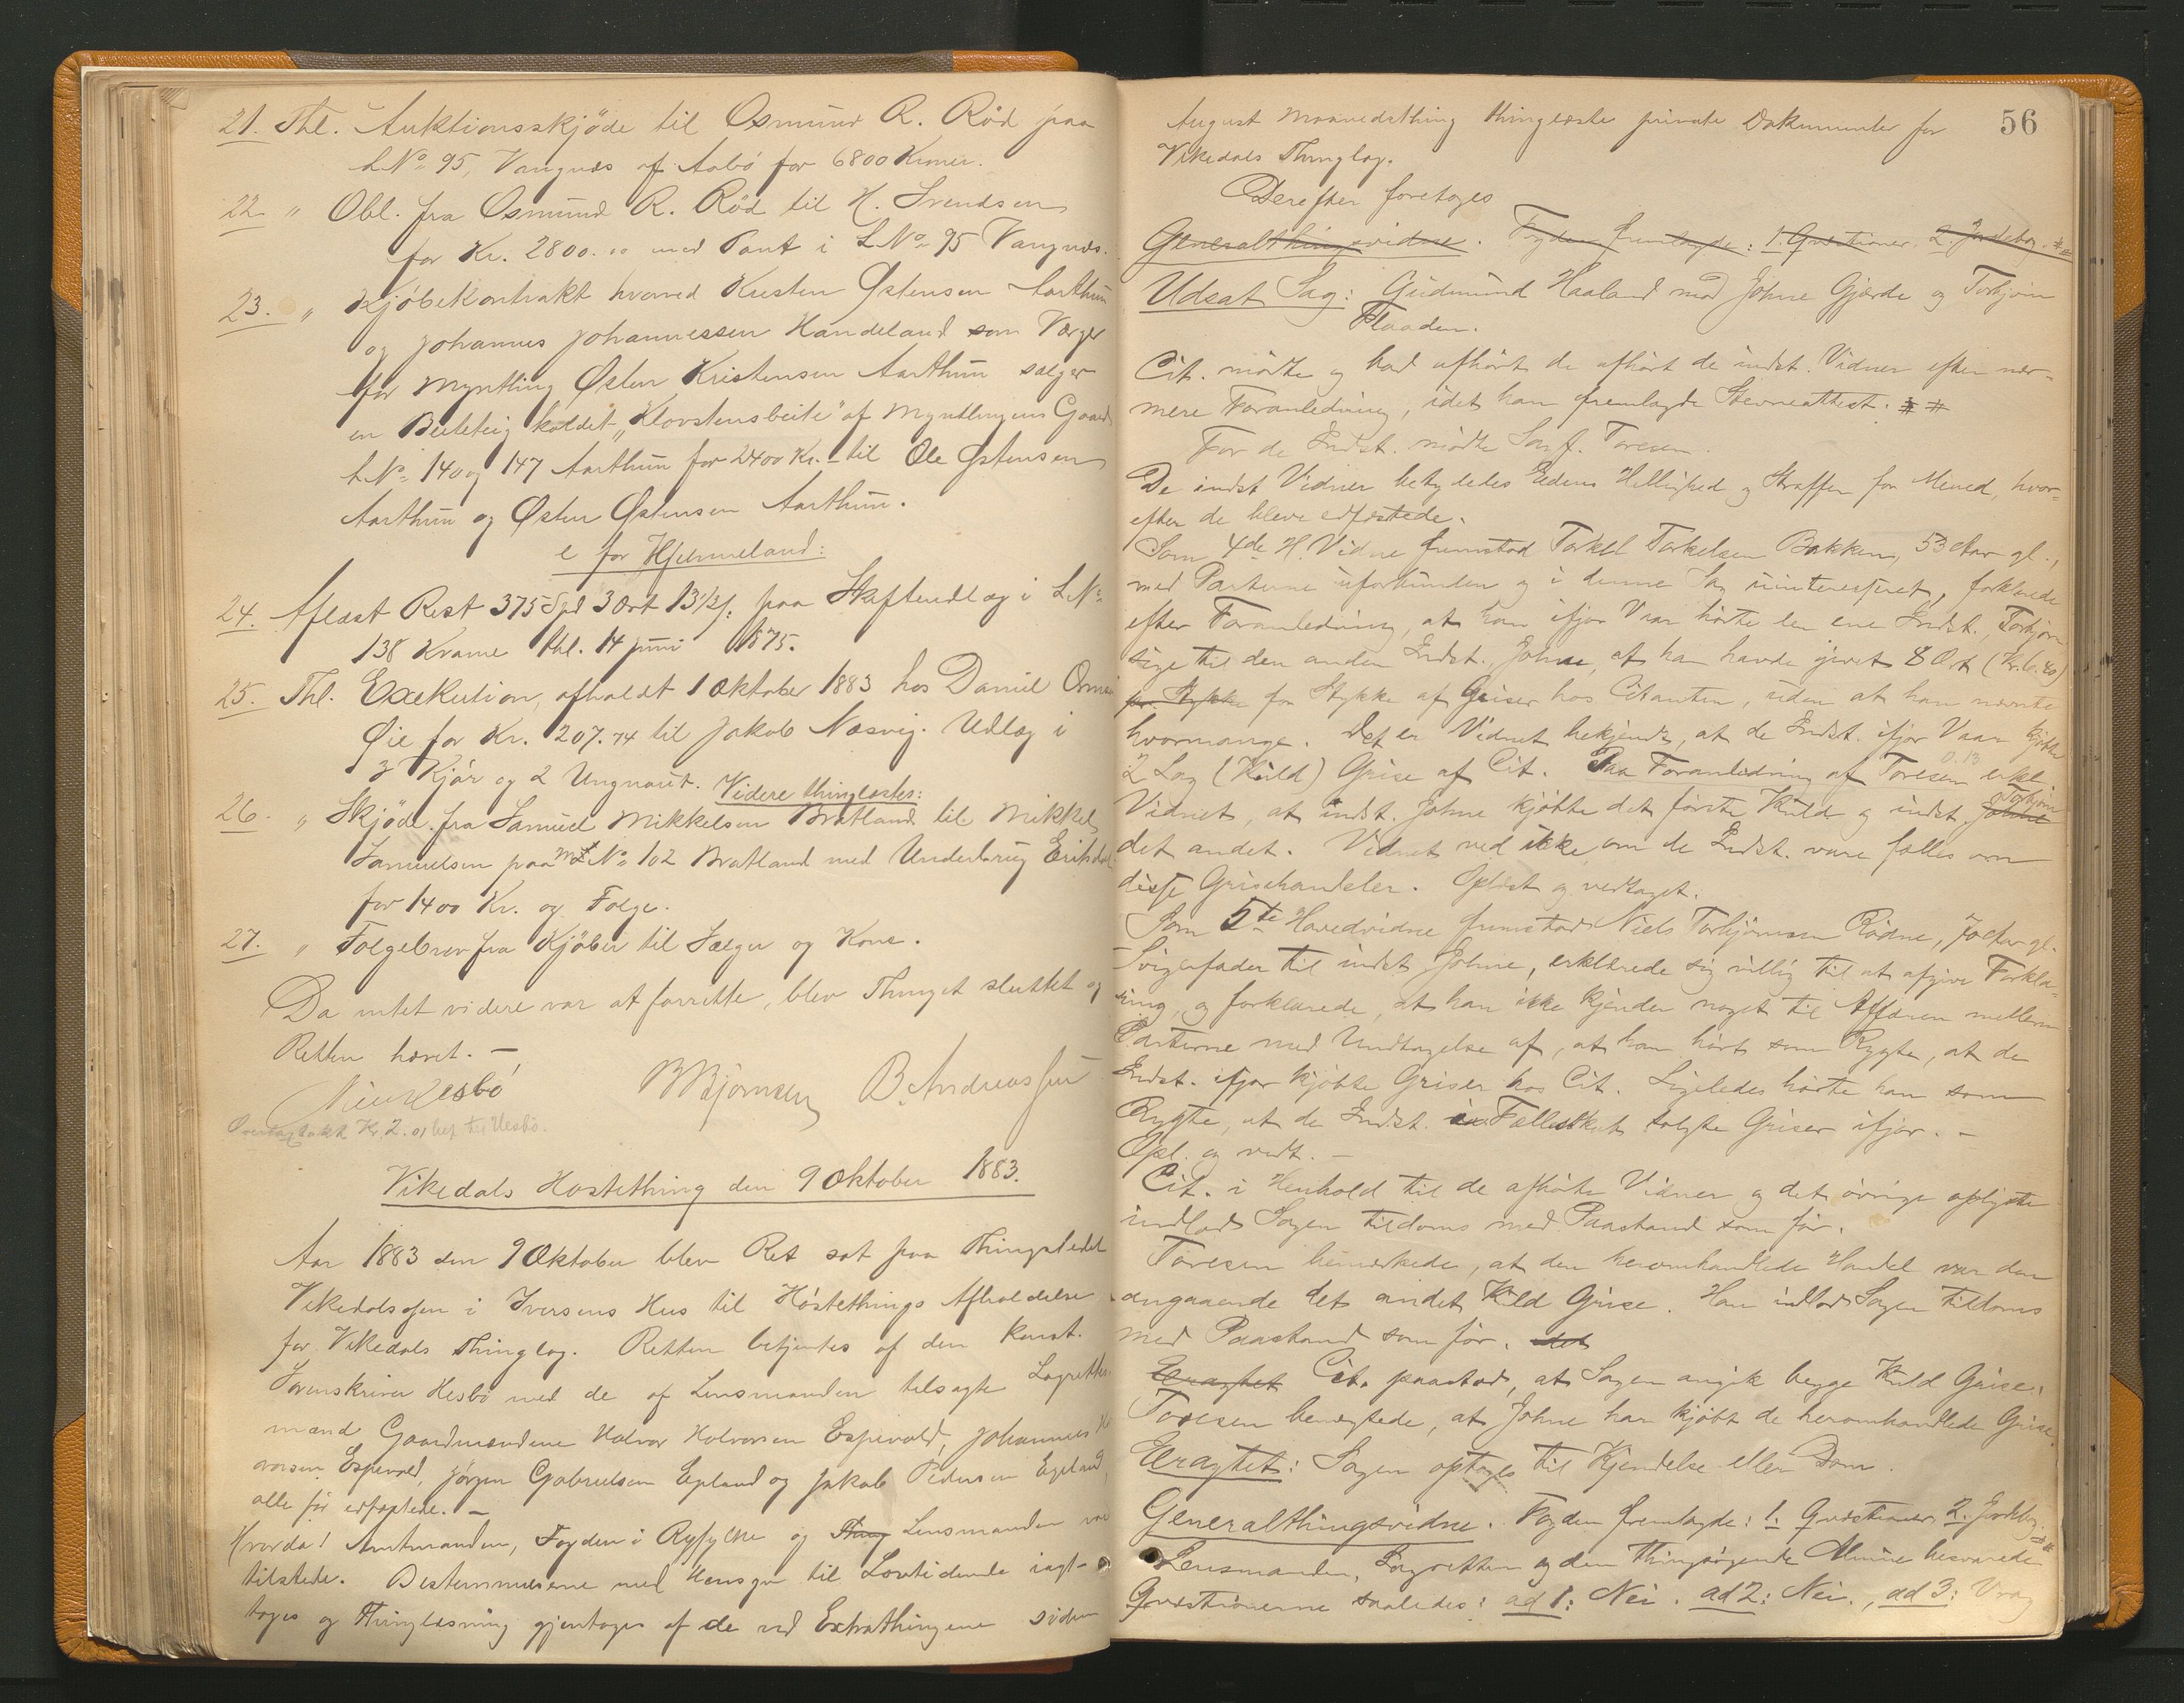 21. Thl. Auktionsskjøde til Osmund R. Rød paa
LNo 95, Vangnæs af Aabø for 6800 Kroner.
22 " Obl. fra Osmund R. Rød til H. Svendsen
for Kr. 2800.00 med Pant i LNo 95 Vangnæs.
23. " Kjøbekontrakt hvorved Kristen Østensen Aarthun
og Johannes Johannessen Handeland som Værger
for Myndling Østen Kristensen Aarthun sælger
en Beiteteig kaldet "Klovstensbeite" af Myndlingens Gaard
LNo 140 og 147 Aarthun for 2400 Kr. - til Ole Østensen
Aarthun og Østen Østensen Aarthun.
e for Hjelmeland:
24. Aflæst Rest 375 Spd 3 Ort 13½ s. paa Skifteudlæg i LNo
138 Krame thl. 14 juni 1875.
25. Thl. Exekution, afholdt 1 Oktober 1883 hos Daniel
Øie for Kr. 207.74 til Jakob Næsvig. Udlæg i
3 Kjør og 2 Ungnaut. Videre thinglæstes:
26. " Skjøde fra Samuel Mikkelsen Bratland til Mikkel
Samuelsen paa MNo 102 Bratland med Underbrug
for 1400 Kr. og Følge.
27. " Følgebrev fra Kjøber til Sælger og Kone.
Da intet videre var at forrette, blev Thinget sluttet og
Retten hævet. -
Hesbø BBjørnsen B. Andreassen
Kr. 2.01 til Hesbø.
Vikedals Høstething den 9 Oktober 1883.
Aar 1883 den 9 Oktober blev Ret sat paa Thingstedet
Vikedalsøen i Iversens Hus til Høstethings Afholdelse
for Vikedals Thinglag. Retten betjentes af den konst.
Sorenskriver Hesbø med de af Lensmanden tilsagte Lagrettes
mænd Gaardmændene Halvor Halvorsen Espevold, Johannes
Espevold, Jørgen Gabrielsen Egeland og Jakob Pedersen Egeland,
alle før edfæstede. -
Hvorda! Amtmanden, Fogden i Ryfylke og Thing Lensmanden var
tilstede. Bestemmelserne med Hensyn til Lovtidende iagt-
toges og Thinglæsning gjentoges af de ved Extrathingene siden
56
August Maanedsthing thinglæste private Dokumenter for
Vikedals Thinglag.
Derefter foretoges
Generalthingsvidne. Fogden fremlagde: 1. Qvæstioner. 2. Jordebog. #
Udsat Sag: Gudmund Haaland mod Johne Gjærde og Torbjørn
Flaaden.
Cit. mødte og bad afhørt de afhørt de indst. Vidner efter nær-
mere Foranledning, idet han fremlagde Stevneattest. # #
For de Indst. mødte Toresen.
De indst Vidner betydedes Eedens Hellighed og Straffen for Mened, hvor-
efter de bleve edfæstede.
Som 4de H. Vidne fremstod Torkel Torkelsen Bakken, 53 Aar gl.,
med Parterne uforbunden og i denne Sag uinteresseret, forklarede
efter Foranledning, at han ifjor Vaar hørte den ene Indst., Torbjørn
sige til den anden Indst., Johne, at han havde givet 8 Ort (Kr. 6.40)
pr. Stykke for Stykke af Griser hos Citanten, uden at han nævnte
hvormange. Det er Vidnet bekjendt, at de Indst. ifjor Vaar kjøbte
2 Lag (Kuld) Grise af Cit. Paa Foranledning af Toresen erkl.
Vidnet, at indst. Johne kjøbte det første Kuld og indst. Johne Torbjørn
det andet. Vidnet ved ikke om de Indst. vare fælles om
disse Grisehandeler. Oplæst og vedtaget.
Som 5te Hovedvidne fremstod Niels Torbjørnsen Rødne, 70 Aar gl.
Svigerfader til indst Johne, erklærede sig villig til at afgive Forkla-
ring, og forklarede, at han ikke kjender noget til Affæren mellem
Parterne med Undtagelse af, at han hørt som Rygte, at de
Indst. ifjor kjøbte Griser hos Cit. Ligeledes hørte han som
Rygte, at de Indst. i Fællesskab solgte Griser ifjor. -
Opl. og vedt. -
Cit. i Henhold til de afhørte Vidner og det øvrige oplyste
indlod Sagen tildoms med Paastand som før.
Toresen bemærkede, at den heromhandlede Handel var den
angaaende det andet Kuld Grise. Han indlod Sagen tildoms
med Paastand som før. det
Eragtet Cit. paastod, at Sagen angik begge Kuld Grise.
Toresen benægtede, at Johne har kjøbt de heromhandlede Grise.
Eragtet: Sagen optages til Kjendelse eller Dom.
Generalthingsvidne. Fogden fremlagde: 1. Qvæstioner 2. Jordebog. #
Lensmanden, Lagretten og den Thingsøgende Almue besvarede
Qvæstionerne saaledes: ad 1: Nei. ad 2: Nei., ad 3: